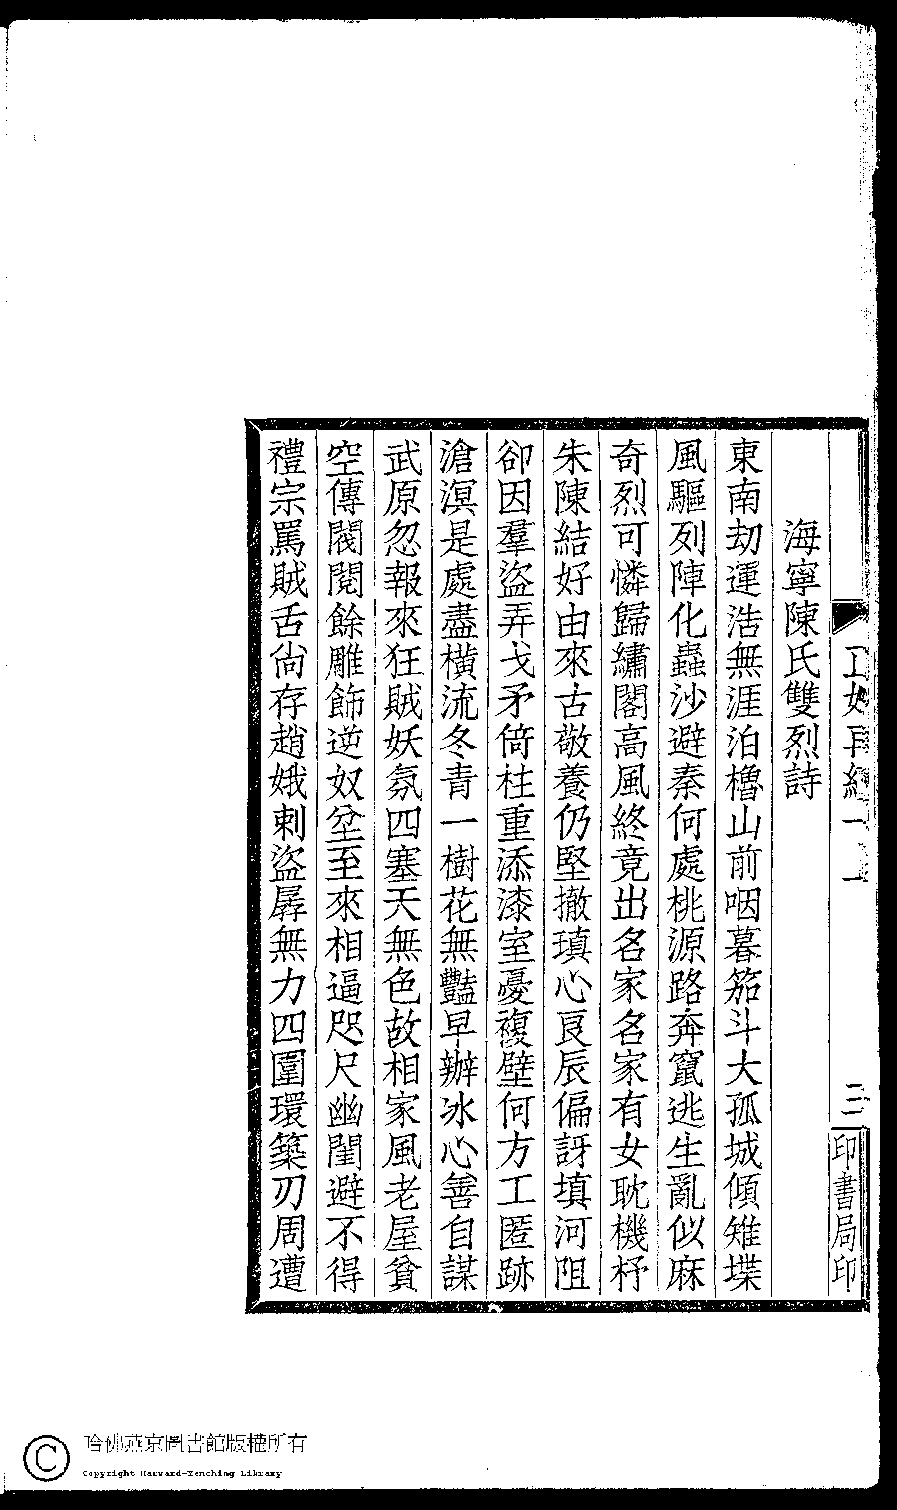 海寧陳氏雙烈詩
東南劫運浩無涯泊櫓山前咽暮笳斗大孤城傾雉堞
風驅列陣化蟲沙避秦何處桃源路奔竄逃生亂似麻
奇烈可憐歸繡閣高風終竟出名家名家有女耽機杼
朱陳結好由來古敬養仍堅撤瑱心良辰偏訝填河阻
卻因羣盜弄戈矛倚柱重添漆室憂複壁何方工匿跡
滄溟是處盡橫流冬青一樹花無豔早辦冰心善自謀
武原忽報來狂賊妖氛四塞天無色故相家風老屋貧
空傳閥閱餘雕飾逆奴坌至來相逼咫尺幽閨避不得
禮宗罵賊舌尙存趙娥刺盜孱無力四圍環築刃周遭
二
印書局印
哈佛燕京圖書館版權所有
Copyright Harvard-Yenching Library